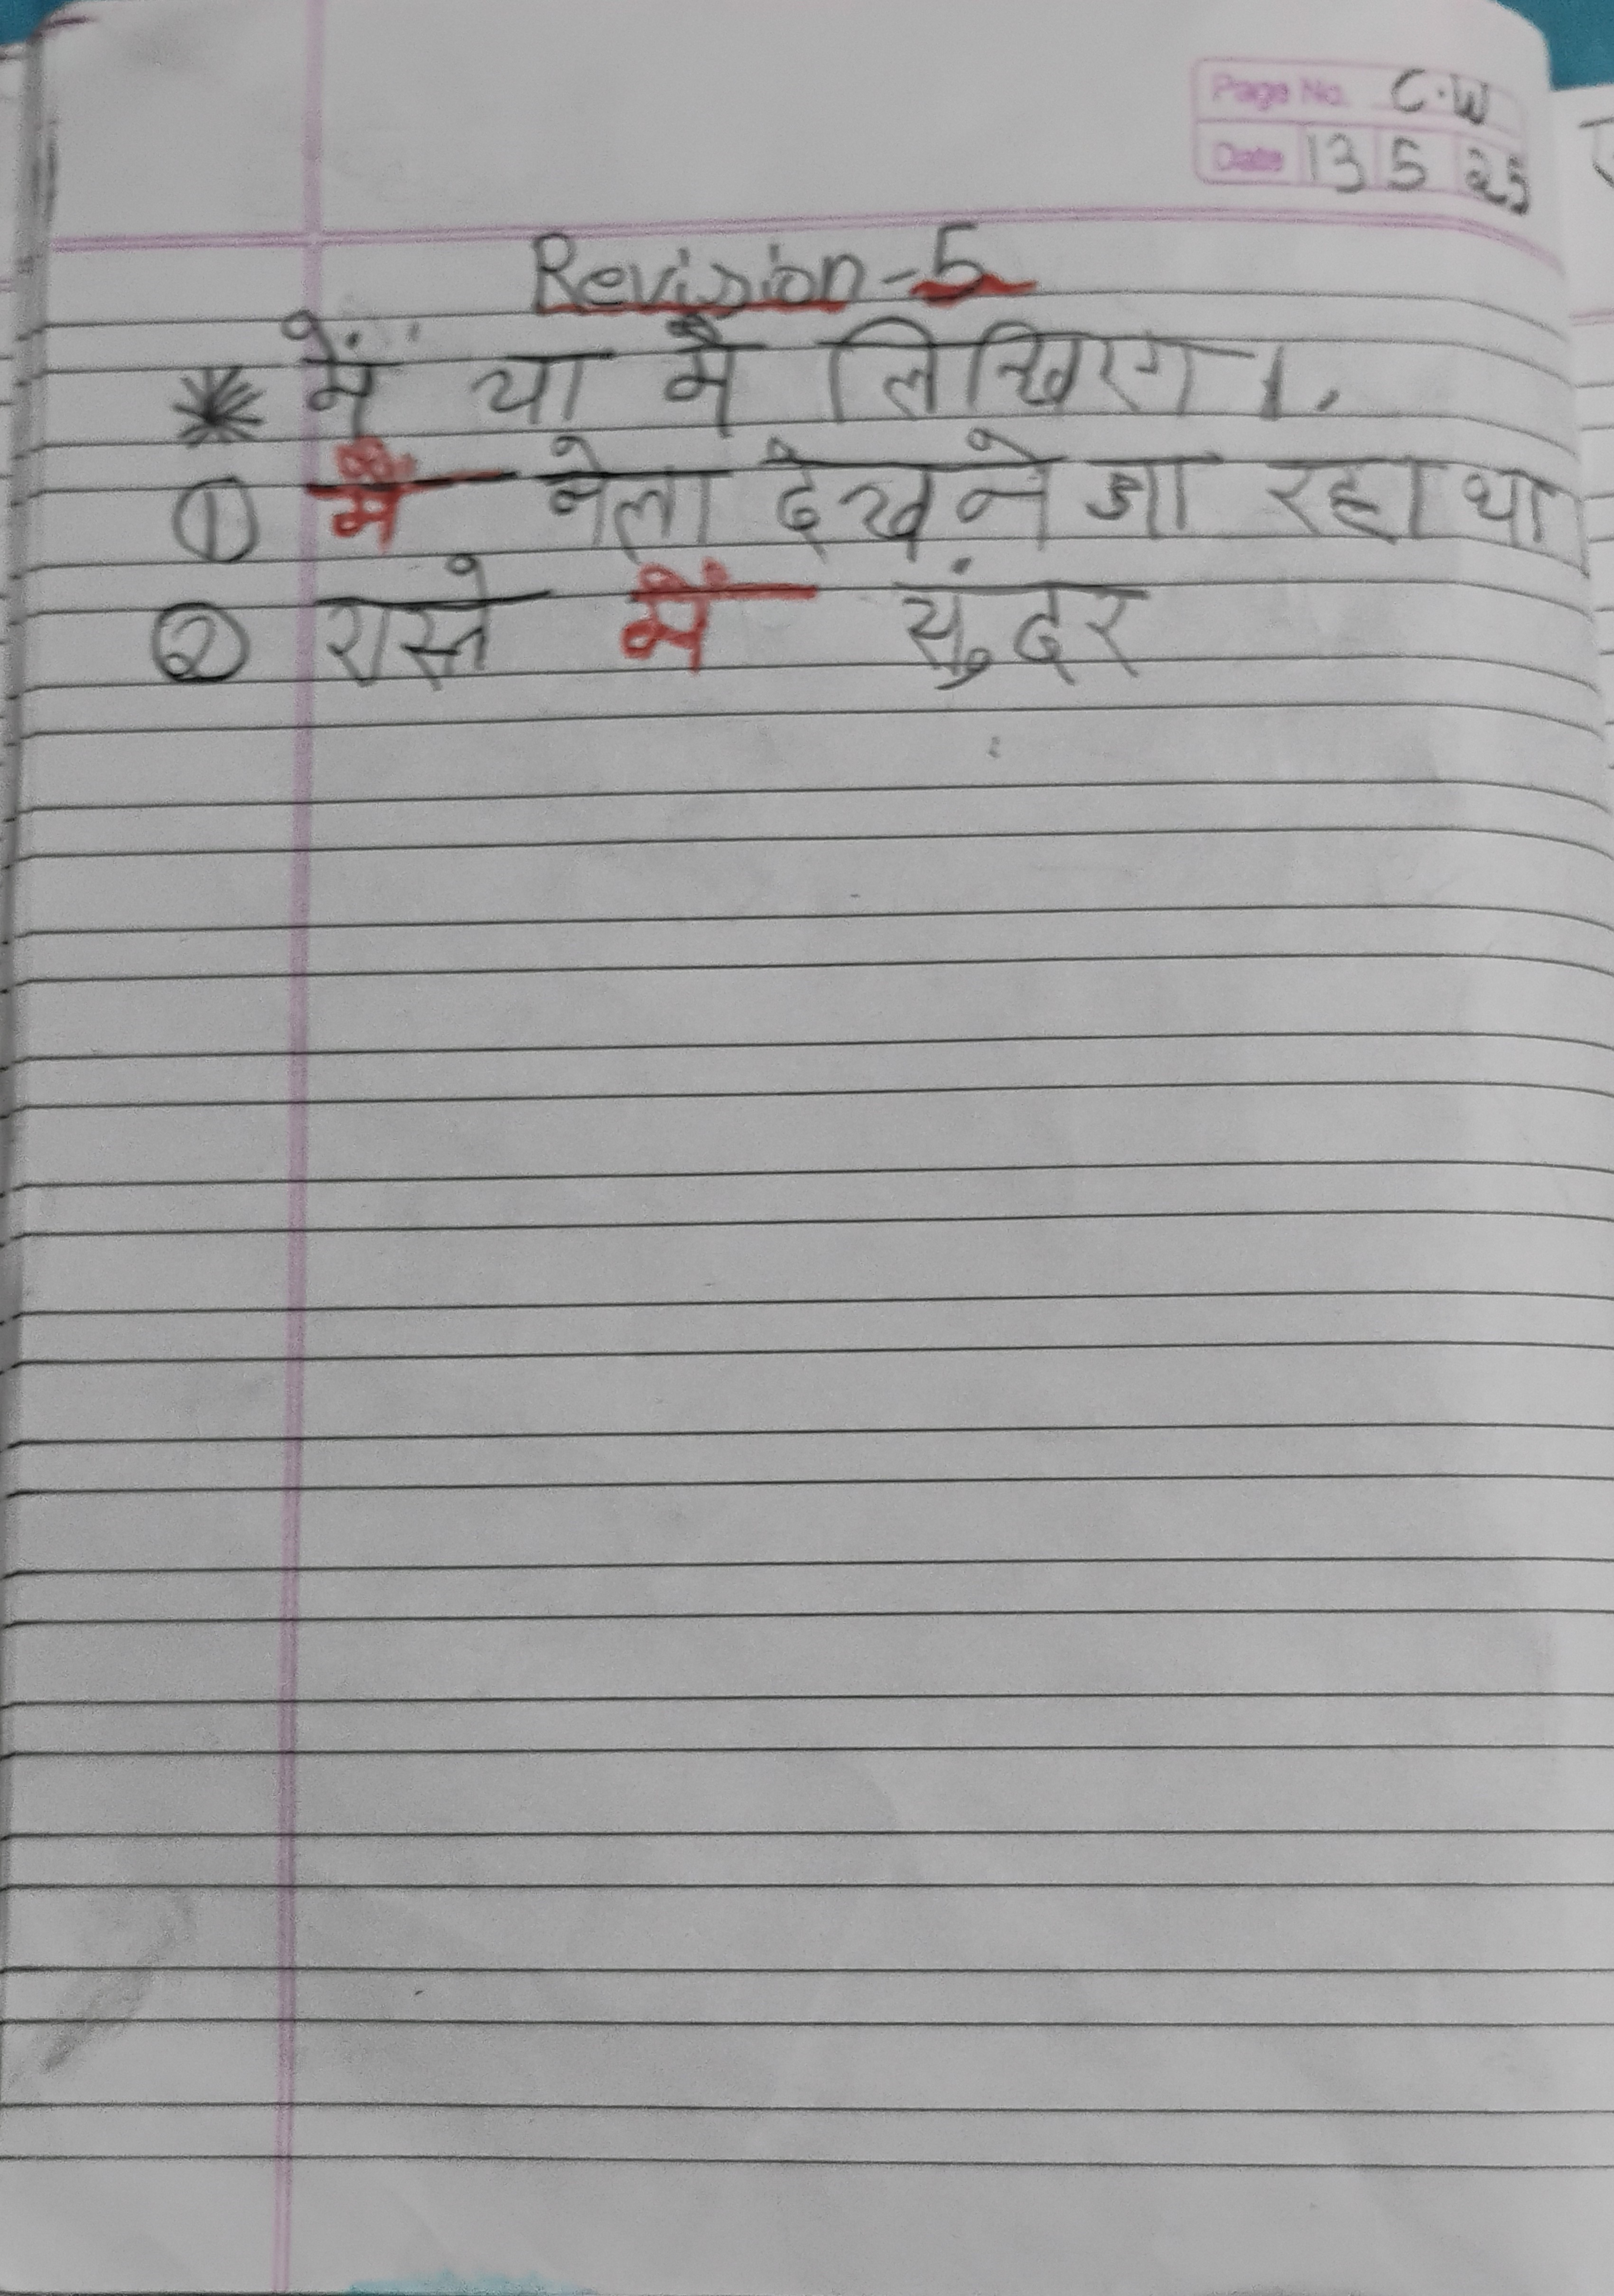 Page No. C.W
Date 13 5 25
Revision-5
में या मै लिखिए।
① मैं मेला देखने जा रहा था
② रास्ते में सुंदर